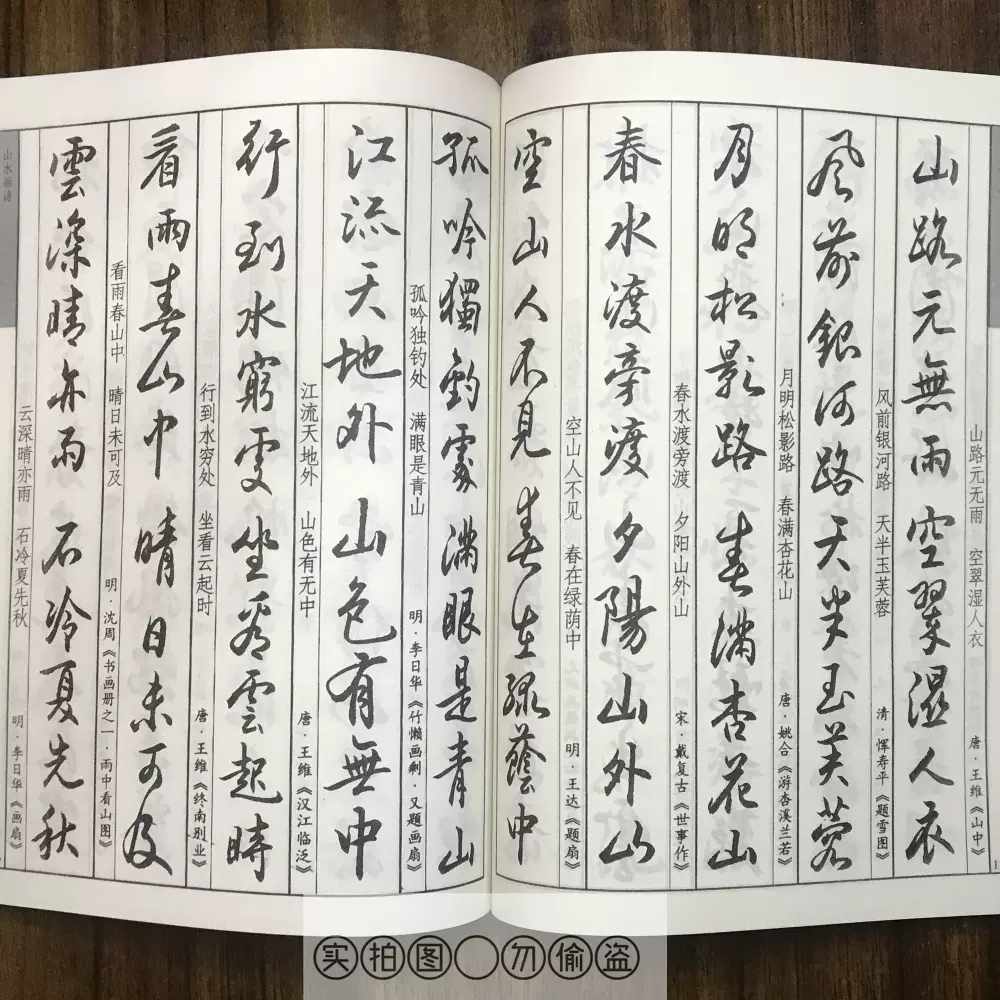 山路元無雨空翠濕人衣
山路元无雨 空翠湿人衣 唐·王维《山中》
風前銀河路天半玉芙蓉
风前银河路 天半玉芙蓉 清·恽寿平《题雪图》
月明松影路春滿杏花山
月明松影路 春满杏花山 唐·姚合《游杏溪兰若》
春水渡旁渡夕陽山外山
春水渡旁渡 夕阳山外山 宋·戴复古《世事作》
空山人不見春在綠蔭中
空山人不见 春在绿荫中 明·王达《题扇》
孤吟獨釣處滿眼是青山
孤吟独钓处 满眼是青山 明·李日华《竹懒画剩·又题画扇》
江流天地外山色有無中
江流天地外 山色有无中 唐·王维《汉江临泛》
行到水窮處坐看雲起時
行到水穷处 坐看云起时 唐·王维《终南别业》
看雨春山中晴日未可及
看雨春山中 晴日未可及 明·沈周《书画册之一·雨中看山图》
雲深晴亦雨石冷夏先秋
云深晴亦雨 石冷夏先秋 明·李日华《画扇》
山水画诗
实拍图 勿偷盗